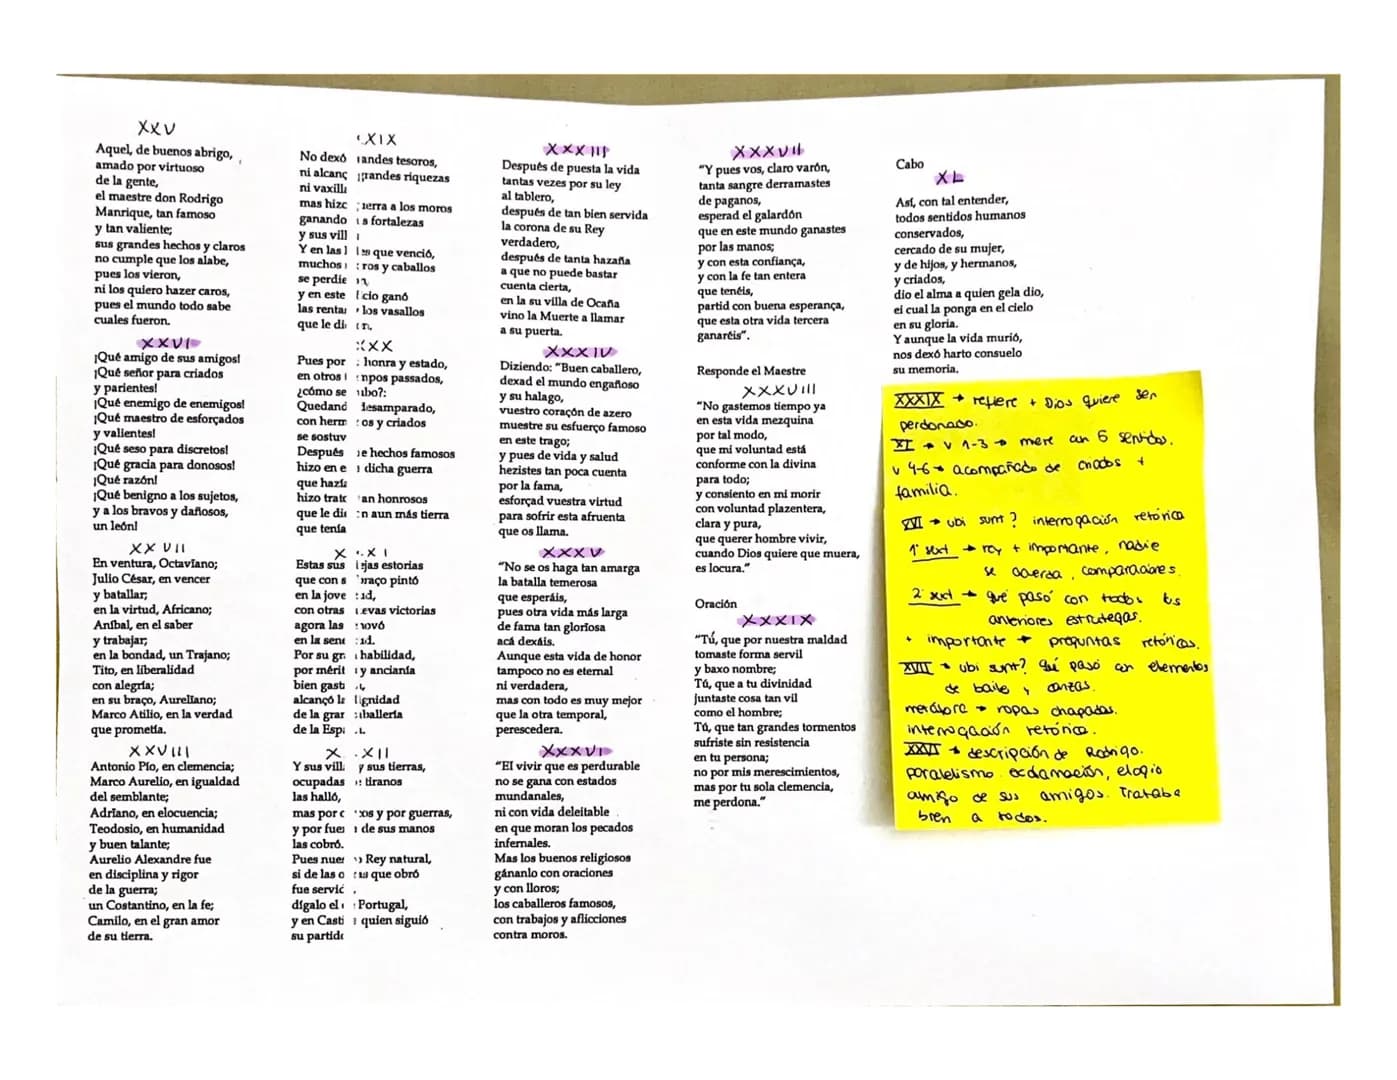 XXV
Aquel, de buenos abrigo,
amado por virtuoso
de la gente,
el maestre don Rodrigo
Manrique, tan famoso
y tan valiente;
sus grandes hechos y claros
no cumple que los alabe,
pues los vieron,
ni los quiero hazer caros,
pues el mundo todo sabe
cuales fueron.
XXVI
¡Qué amigo de sus amigos!
¡Qué señor para criados
y parientes!
¡Qué enemigo de enemigos!
¡Qué maestro de esforçados
y valientes!
¡Qué seso para discretos!
¡Qué gracia para donosos!
¡Qué razón!
¡Qué benigno a los sujetos,
y a los bravos y dañosos,
un león!
XXVII
En ventura, Octaviano;
Julio César, en vencer
y batallar;
en la virtud, Africano;
Aníbal, en el saber
y trabajar;
en la bondad, un Trajano;
Tito, en liberalidad
con alegría;
en su braço, Aureliano;
Marco Atilio, en la verdad
que prometía.
XXVIII
Antonio Pío, en clemencia;
Marco Aurelio, en igualdad
del semblante;
Adriano, en elocuencia;
Teodosio, en humanidad
y buen talante;
Aurelio Alexandre fue
en disciplina y rigor
de la guerra;
un Costantino, en la fe;
Camilo, en el gran amor
de su tierra.
XIX
No dexó randes tesoros,
ni alcanç grandes riquezas
ni vaxill
mas hizo erra a los moros
ganando s fortalezas
y sus vill
Y en las l que venció,
muchos ros y caballos
se perdie
y en este icio ganó
las renta los vasallos
que le di
XX
Pues por honra y estado,
en otros mpos passados,
¿cómo se ubo?:
Quedand desamparado,
con herm os y criados
se sostuv
Después hechos famosos
hizo en e dicha guerra
que hazí
hizo trat an honrosos
que le di n aun más tierra
que tenía
X XI
Estas sus ejas estorias
que con s braço pintó
en la jove
con otras evas victorias
agora las novó
en la sene
Por su gr habilidad,
por mérit y ancianía
bien gast
alcançó l dignidad
de la gran ballería
de la Esp
X XII
Y sus vill y sus tierras,
ocupadas tiranos
las halló,
mas por c os y por guerras,
y por fue de sus manos
las cobró.
Pues nue Rey natural,
si de las o que obró
fue servi
dígalo el Portugal,
y en Casti quien siguió
su partid
XXXIII
Después de puesta la vida
tantas vezes por su ley
al tablero,
después de tan bien servida
la corona de su Rey
verdadero,
después de tanta hazaña
a que no puede bastar
cuenta cierta,
en la su villa de Ocaña
vino la Muerte a llamar
a su puerta.
XXXIV
Diziendo: "Buen caballero,
dexad el mundo engañoso
y su halago,
vuestro coraçón de azero
muestre su esfuerço famoso
en este trago;
y pues de vida y salud
hezistes tan poca cuenta
por la fama,
esforçad vuestra virtud
para sofrir esta afruenta
que os llama.
XXXV
"No se os haga tan amarga
la batalla temerosa
que esperáis,
pues otra vida más larga
de fama tan gloriosa
acá dexáis.
Aunque esta vida de honor
tampoco no es eternal
ni verdadera,
mas con todo es muy mejor
que la otra temporal,
perescedera.
XXXVI
"El vivir que es perdurable
no se gana con estados
mundanales,
ni con vida deleitable
en que moran los pecados
infernales.
Mas los buenos religiosos
gánanlo con oraciones
y con lloros;
los caballeros famosos,
con trabajos y aflicciones
contra moros.
XXXVII
"Y pues vos, claro varón,
tanta sangre derramastes
de paganos,
esperad el galardón
que en este mundo ganastes
por las manos;
y con esta confiança,
y con la fe tan entera
que tenéis,
partid con buena esperança,
que esta otra vida tercera
ganaréis".
Responde el Maestre
XXXVIII
"No gastemos tiempo ya
en esta vida mezquina
por tal modo,
que mi voluntad está
conforme con la divina
para todo;
y consiento en mi morir
con voluntad plazentera,
clara y pura,
que querer hombre vivir,
cuando Dios quiere que muera,
es locura."
Oración
XXXIX
"Tú, que por nuestra maldad
tomaste forma servil
y baxo nombre;
Tú, que a tu divinidad
juntaste cosa tan vil
como el hombre;
Tú, que tan grandes tormentos
sufriste sin resistencia
en tu persona;
no por mis merescimientos,
mas por tu sola clemencia,
me perdona."
Cabo
XL
Así, con tal entender,
todos sentidos humanos
conservados,
cercado de su mujer,
y de hijos, y hermanos,
y criados,
dio el alma a quien gela dio,
el cual la ponga en el cielo
en su gloria.
Y aunque la vida murió,
nos dexó harto consuelo
su memoria.
XXXIX → refiere + Dios quiere ser
perdonado.
XL → v 1-3 → mere con 5 sentidos.
v 4-6 → acompañado de criados +
familia.
XVI → ubi sunt? interrogación retórica
1ª sext → rey + importante, nadie
se acuerda, comparaciones.
2ª sext → qué pasó con todos los
anteriores estrategas.
+ importante → preguntas retóricas.
XVII → ubi sunt? Qué pasó con elementos
de baile y danzas.
metáfora → ropas chapadas.
interrogación retórica.
XXVI → descripción de Rodrigo.
paralelismo exclamación, elogio
amigo de sus amigos. Trataba
bien a todos.